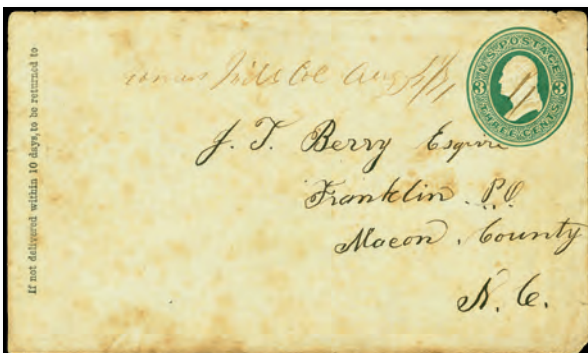 If not delivered within 10 days, to be returned to
Col Aug
U.S. POSTAGE
3 3
THREE CENTS
J. T. Berry Esquire
Franklin P.O
Macon County
N. C.